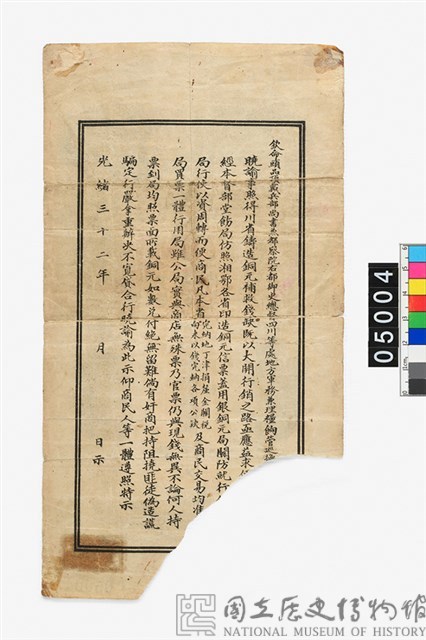 欽命頭品頂戴兵部尚書兼都察院右都御史總督四川等處地方軍務兼理糧餉管巡撫
曉諭事照得川省鑄造銅元補救錢缺既以大開行銷之路亟應益求
經本督部堂飭局仿照湘鄂各省印造銅元信票蓋用銀銅元局關防就行
局行使以資周轉而便商民凡本省完納地丁津捐釐金關稅向來以錢完納各項公款及商民交易均准
局買票一體行用局雖公局實與商店無殊票乃官票仍與現錢無異不論何人持
票到局均照票面所載銅元如數兌付絕無留難倘有奸商把持阻撓匪徒偽造謊
騙定行嚴拿重辦決不寬貸合行照諭為此示仰商民人等一體遵照特示
光緒三十二年 月 日示
05004
國立歷史博物館
NATIONAL MUSEUM OF HISTORY